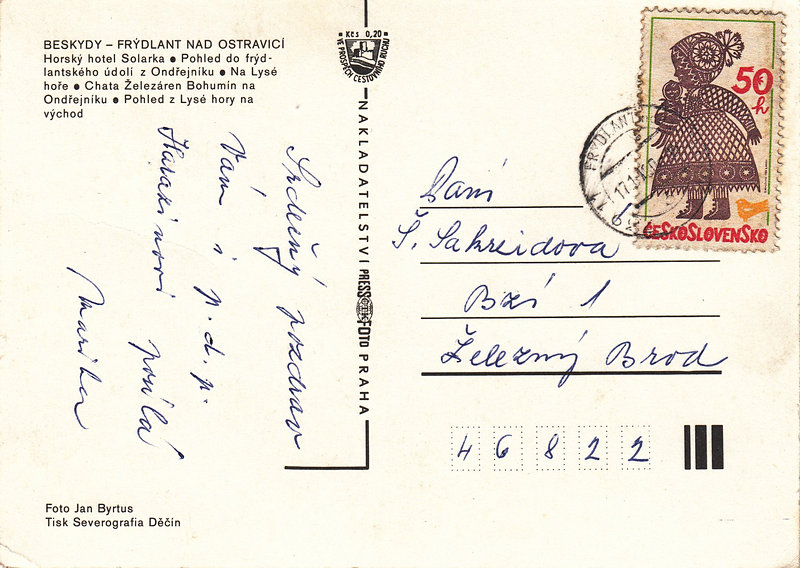 BESKYDY – FRÝDLANT NAD OSTRAVICÍ
Horský hotel Solarka ● Pohled do frýd-
lantského údolí z Ondřejníku ● Na Lysé
hoře ● Chata Železáren Bohumín na
Ondřejníku ● Pohled z Lysé hory na
východ
Srdečný pozdrav
Vám i p. d. p.
Harazinovi posílá
Marika
Foto Jan Byrtus
Tisk Severografia Děčín
Kčs 0,20
VE PROSPĚCH CESTOVNÍHO RUCHU
NAKLADATELSTVÍ PRESSFOTO PRAHA
50
h
ČESKOSLOVENSKO
FRÝDLANT
Paní
Š. Sakreidova
Bzí 1
Železný Brod
46822